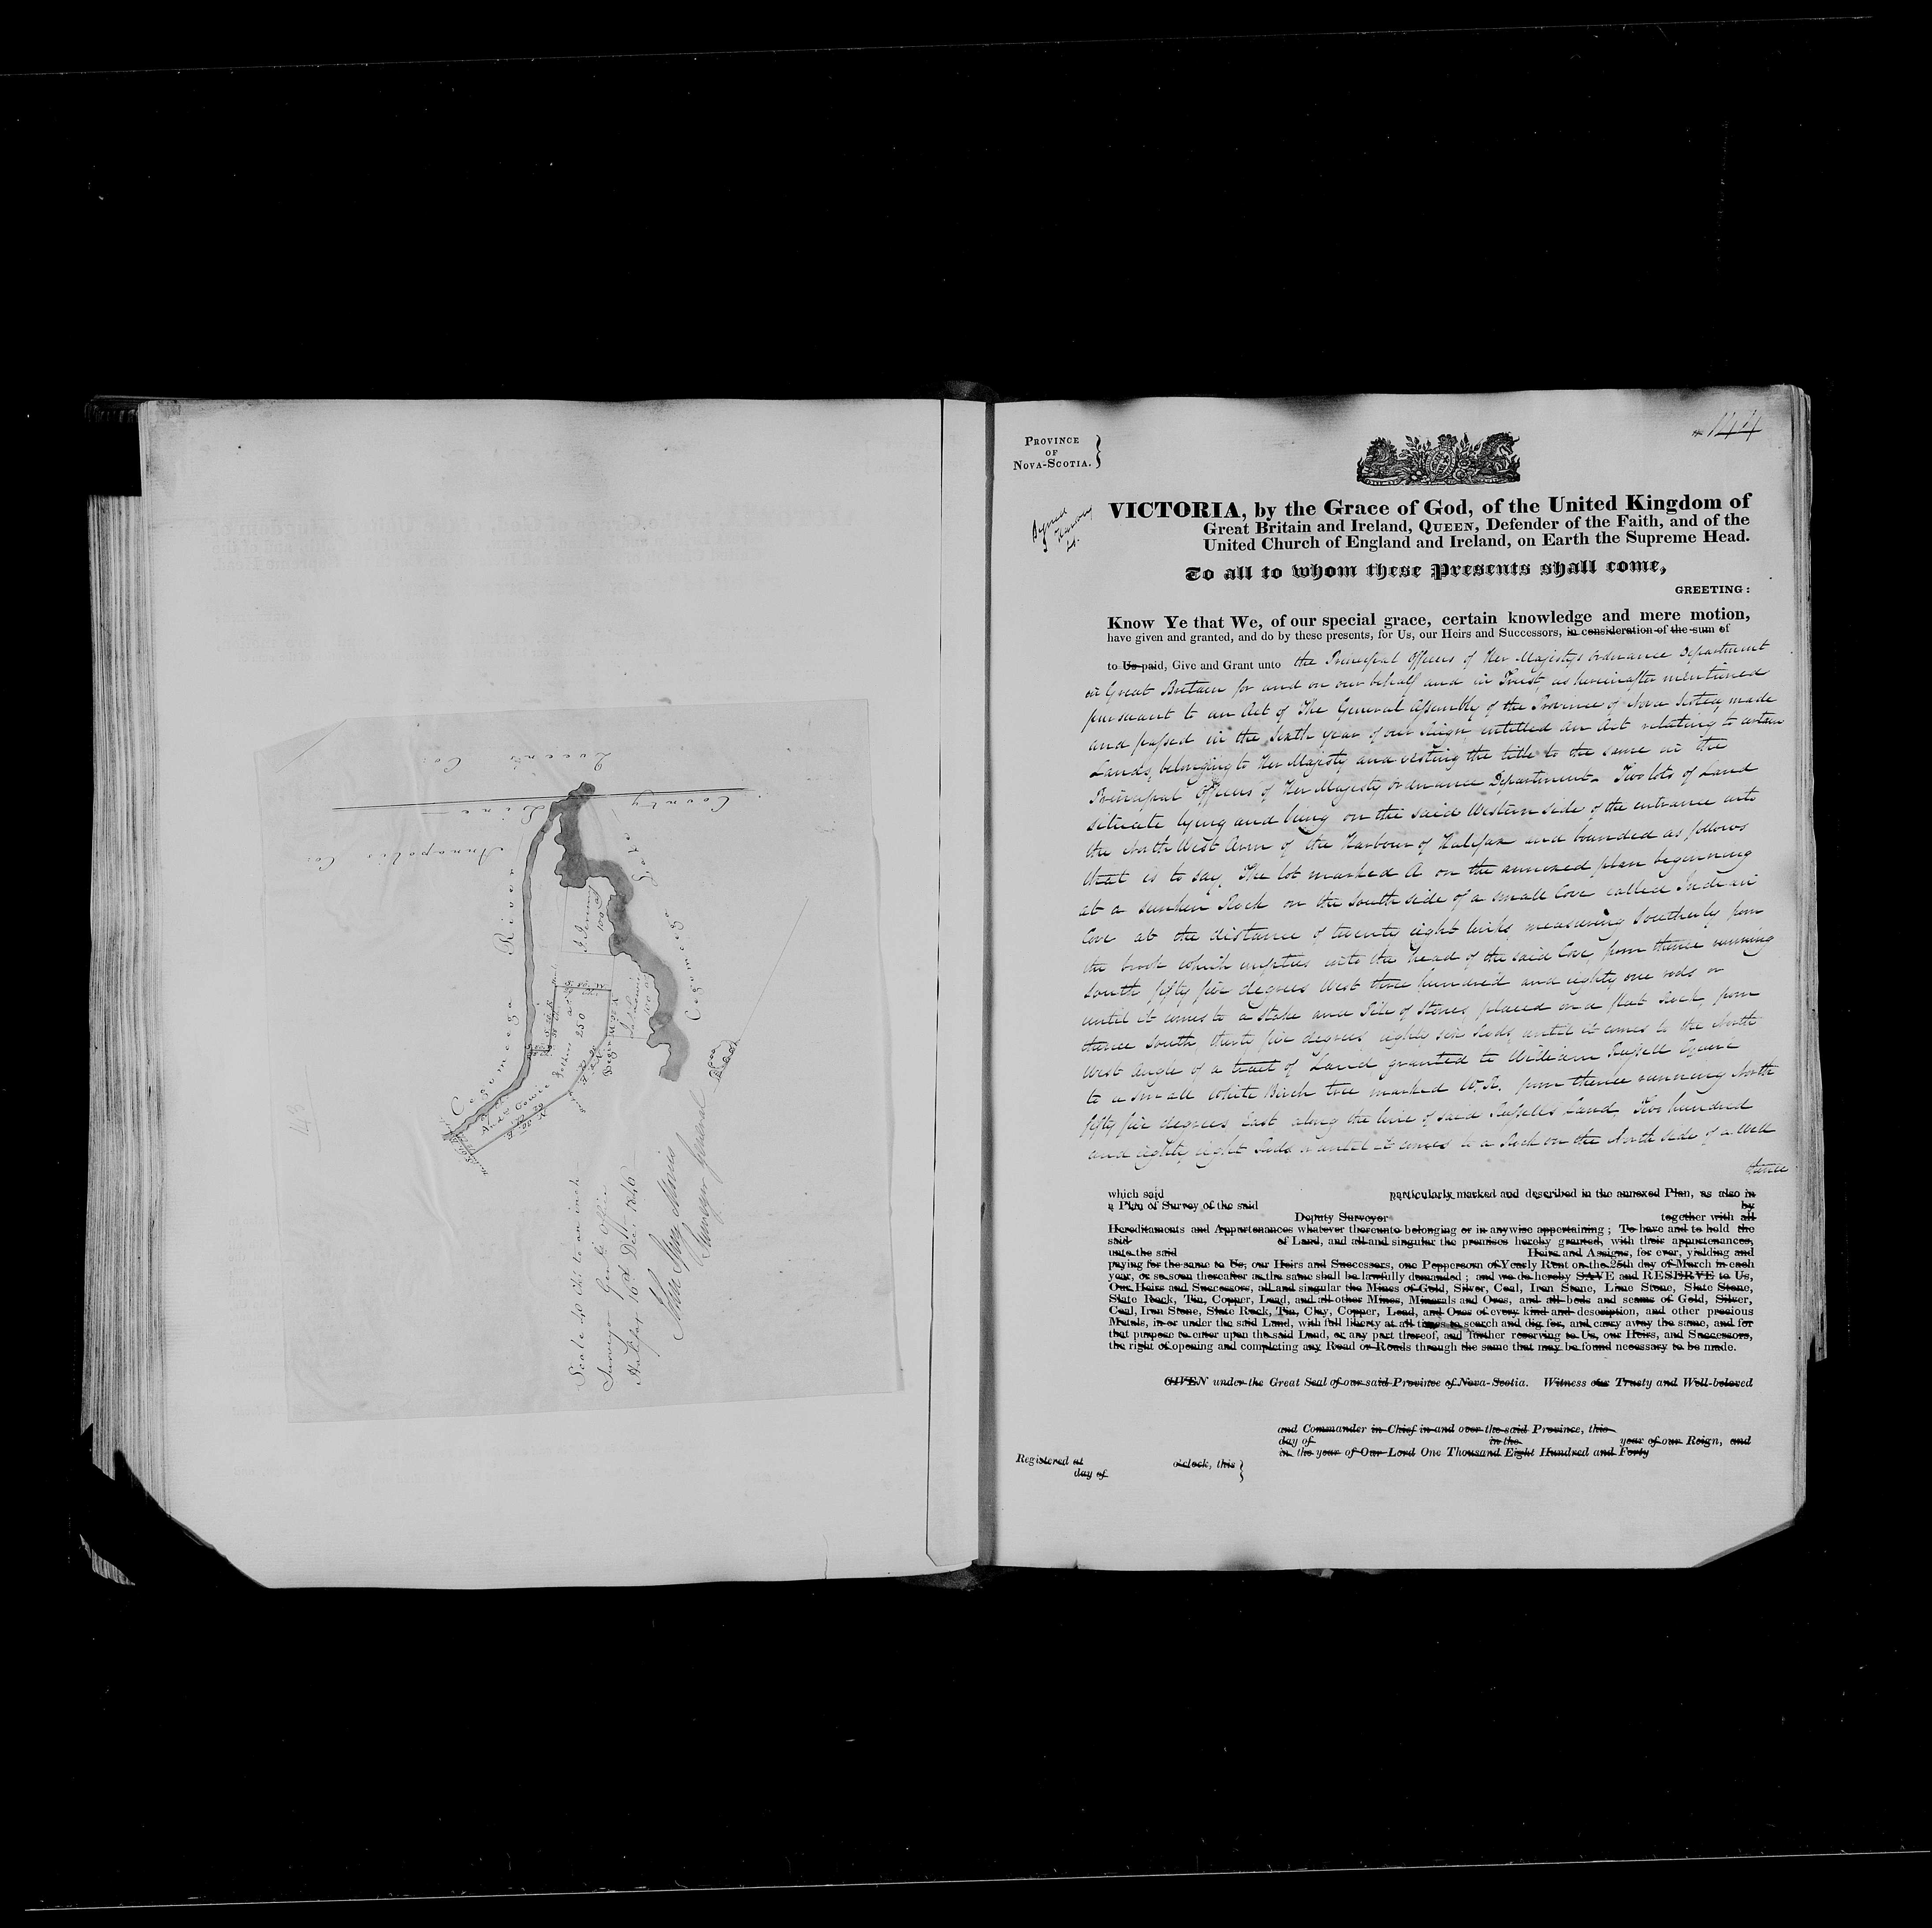 Queen's Co.
County Line
Annapolis Co.
Cegomcega River
Cegomcega Lake
100 as
250 as
Scale 40 chs. to an inch
Surveyor Genl's Office
Halifax 16th Decr. 1846
John Spry Morris
Surveyor General
143
144
PROVINCE
OF
NOVA-SCOTIA.
VICTORIA, by the Grace of God, of the United Kingdom of
Great Britain and Ireland, QUEEN, Defender of the Faith, and of the
United Church of England and Ireland, on Earth the Supreme Head.
To all to whom these Presents shall come,
GREETING:
Know Ye that We, of our special grace, certain knowledge and mere motion,
have given and granted, and do by these presents, for Us, our Heirs and Successors, in consideration of the sum of
to Us paid, Give and Grant unto the Principal Officers of Her Majestys Ordnance Department
in Great Britain for and on our behalf and in Trust, as hereinafter mentioned
pursuant to an Act of The General Assembly of the Province of Nova Scotia, made
and passed in the Sixth year of our Reign entitled An Act relating to certain
Lands, belonging to Her Majesty and vesting the title to the same in the
Principal Officers of Her Majesty Ordnance Department. Two lots of Land
situate lying and being on the said Western side of the entrance into
the North West Arm of the Harbour of Halifax and bounded as follows
that is to say, The lot marked A on the annexed plan beginning
at a sunken Rock on the South side of a small Cove called Indian
Cove at the distance of twenty eight links, measuring Southerly from
the brook which empties into the head of the said Cove, from thence running
South fifty five degrees West three hundred and eighty one rods or
until it comes to a stake and Pile of Stones placed on a flat Rock, from
thence South, thirty five degrees, eighty six Rods, until it comes to the North
West angle of a tract of Land granted to William Russell Esquire
to a small White Birch tree marked W.R. from thence running North
fifty five degrees East along the line of said Russells Land, Two hundred
and eighty eight Rods or until it comes to a Rock on the North side of a Well
thence
which said particularly marked and described in the annexed Plan, as also in
a Plan of Survey of the said by
Deputy Surveyor together with all
Hereditaments and Appurtenances whatever thereunto belonging or in anywise appertaining; To have and to hold the
said of Land, and all and singular the premises hereby granted, with their appurtenances,
unto the said Heirs and Assigns, for ever, yielding and
paying for the same to Us, our Heirs and Successors, one Peppercorn of Yearly Rent on the 25th day of March in each
year, or so soon thereafter as the same shall be lawfully demanded; and we do hereby SAVE and RESERVE to Us,
Our Heirs and Successors, all and singular the Mines of Gold, Silver, Coal, Iron Stone, Lime Stone, Slate Stone,
Slate Rock, Tin, Copper, Lead, and all other Mines, Minerals and Ores, and all beds and seams of Gold, Silver,
Coal, Iron Stone, Slate Rock, Tin, Clay, Copper, Lead, and Ores of every kind and description, and other precious
Metals, in or under the said Land, with full liberty at all times to search and dig for, and carry away the same, and for
that purpose to enter upon the said Land, or any part thereof, and further reserving to Us, our Heirs, and Successors,
the right of opening and completing any Road or Roads through the same that may be found necessary to be made.
GIVEN under the Great Seal of our said Province of Nova-Scotia. Witness our Trusty and Well-beloved
and Commander in Chief in and over the said Province, this
day of in the year of our Reign, and
in the year of Our Lord One Thousand Eight Hundred and Forty
Registered at o'clock, this
day of